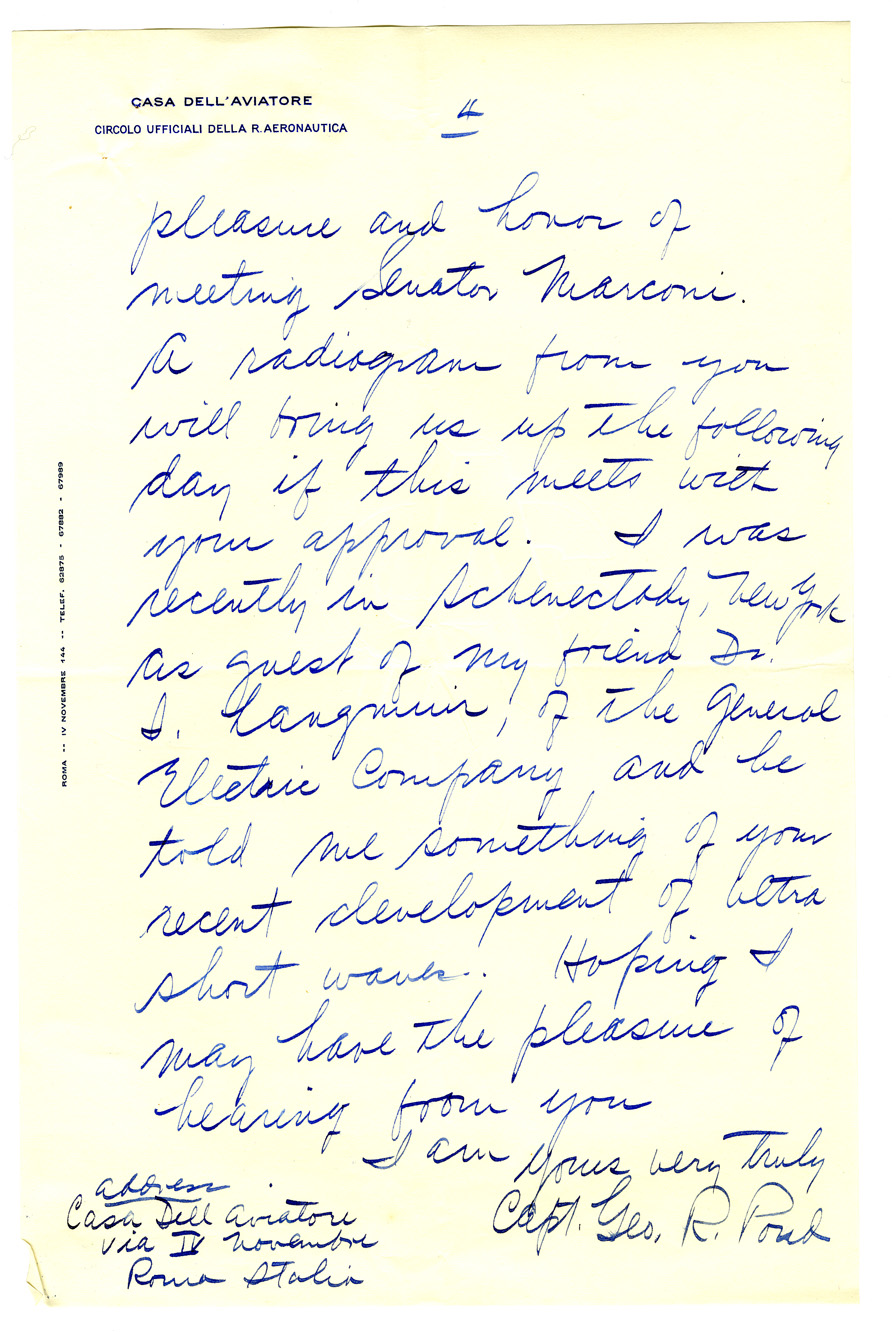 CASA DELL'AVIATORE
CIRCOLO UFFICIALI DELLA R. AERONAUTICA
4
pleasure and honor of
meeting Senator Marconi.
A radiogram from you
will bring us up the following
day if this meets with
your approval. I was
recently in Schenectady, New York
as guest of my friend Dr.
I. Langmuir, of the General
Electric Company and he
told me something of your
recent development of ultra
short waves. Hoping I
may have the pleasure of
hearing from you
I am yours very truly
Capt. Geo. R. Pond
address
Casa Dell Aviatore
Via IV Novembre
Roma Italia
ROMA -- IV NOVEMBRE 144 -- TELEF. 62875 - 67882 - 67989